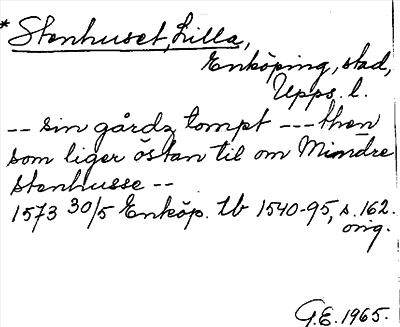 * Stenhuset, Lilla,
Enköping, stad,
Upps. l.
-- sin gårdz tompt --- then
som liger östan til om Mindre
stenhusse --
1573 30/5 Enköp. tb 1540-95, s. 162.
orig.
G.E. 1965.